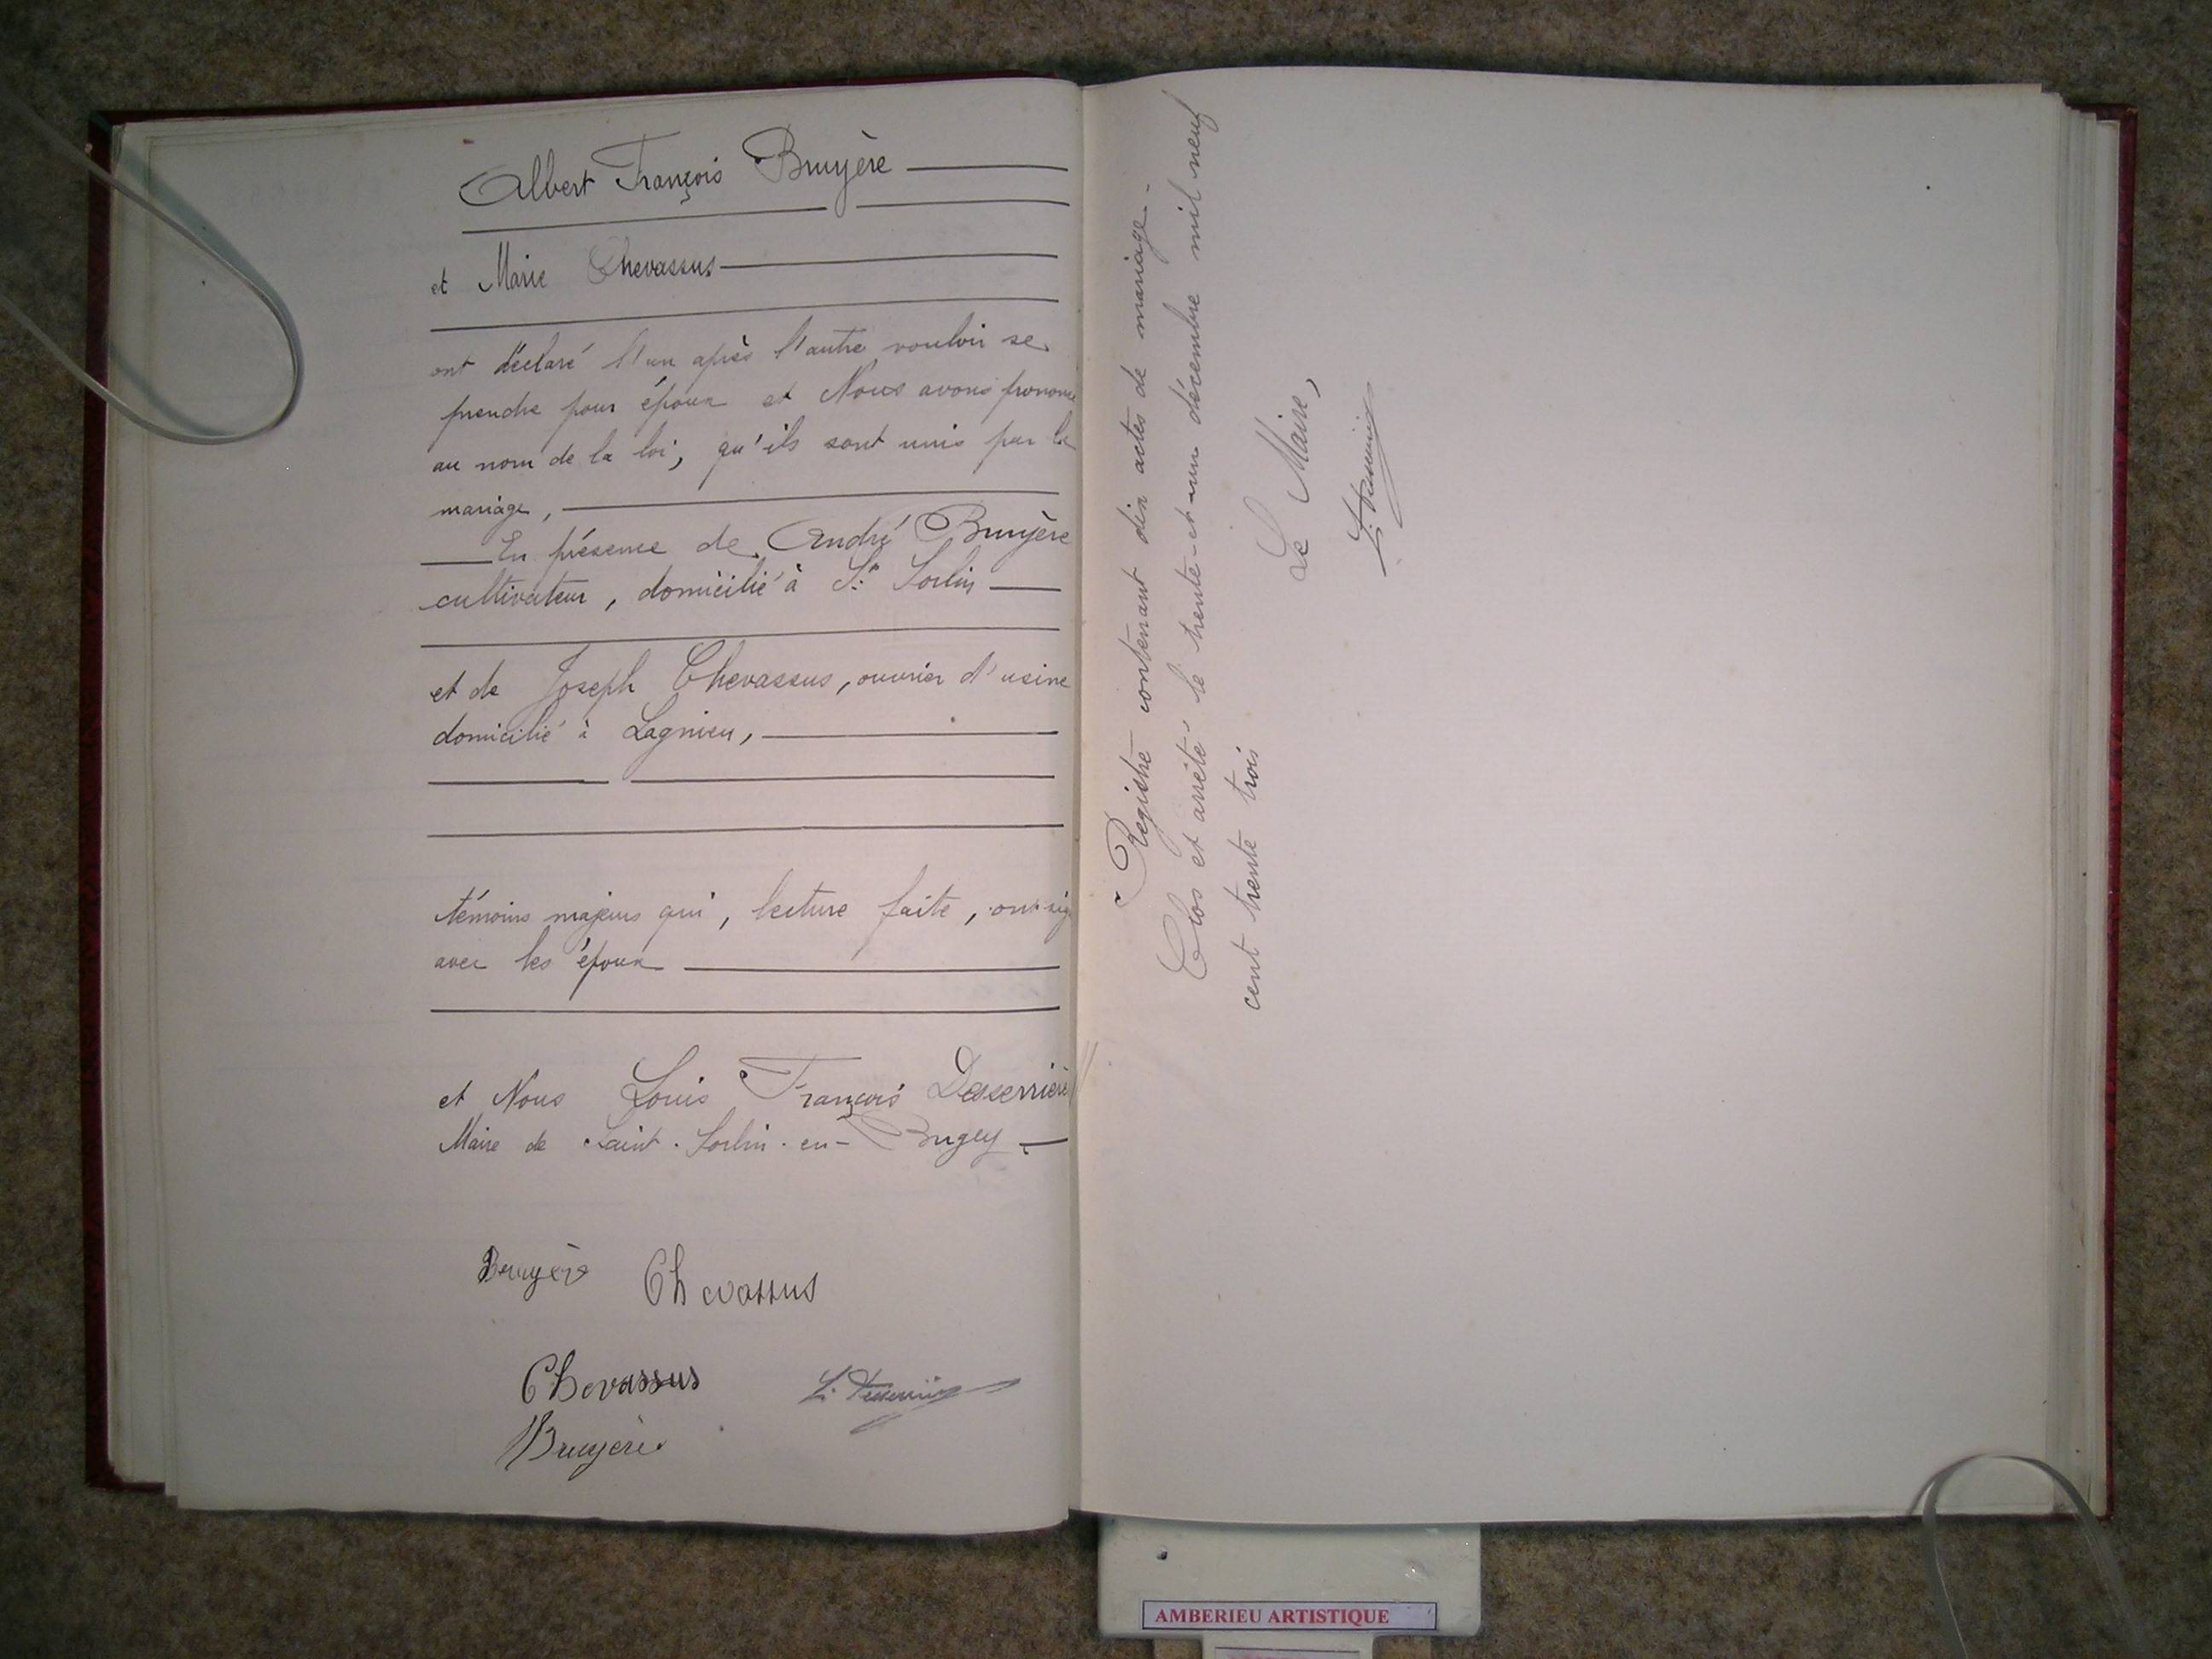 Albert François Bruyère
et Marie Chevassus
ont déclaré l'un après l'autre vouloir se
prendre pour époux et Nous avons prononc
au nom de la loi, qu'ils sont unis par le
mariage,
En présence de André Bruyère
cultivateur, domicilié à St Sorlin
et de Joseph Chevassus, ouvrier d'usine
domicilié à Lagnieu,
témoins majeurs qui, lecture faite, ont sig
avec les époux
et Nous Louis François Desserrière
Maire de Saint-Sorlin-en-Bugey
Bruyère Chevassus
Chevassus
Bruyère
Registre contenant dix actes de mariage.
Clos et arrêté le trente-et-un décembre mil neuf
cent trente trois
Le Maire,
AMBERIEU ARTISTIQUE